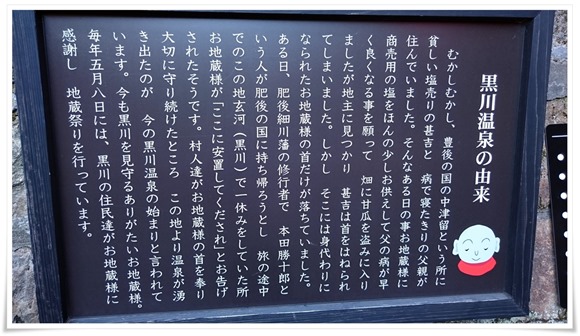 黒川温泉の由来
むかしむかし、豊後の国の中津留という所に
貧しい塩売りの甚吉と 病で寝たきりの父親が
住んでいました。そんなある日の事お地蔵様に
商売用の塩をほんの少しお供えして父の病が早
く良くなる事を願って 畑に甘瓜を盗みに入り
ましたが地主に見つかり 甚吉は首をはねられ
てしまいました。しかし そこには身代わりに
なられたお地蔵様の首だけが落ちていました。
ある日、肥後細川藩の修行者で 本田勝十郎と
いう人が肥後の国に持ち帰ろうとし 旅の途中
でのこの地玄河(黒川)で一休みをしていた所
お地蔵様が「ここに安置してくだされ」とお告げ
されたそうです。村人達がお地蔵様の首を奉り
大切に守り続けたところ この地より温泉が湧
き出たのが 今の黒川温泉の始まりと言われて
います。今も黒川を見守るありがたいお地蔵様。
毎年五月八日には、黒川の住民達がお地蔵様に
感謝し 地蔵祭りを行っています。